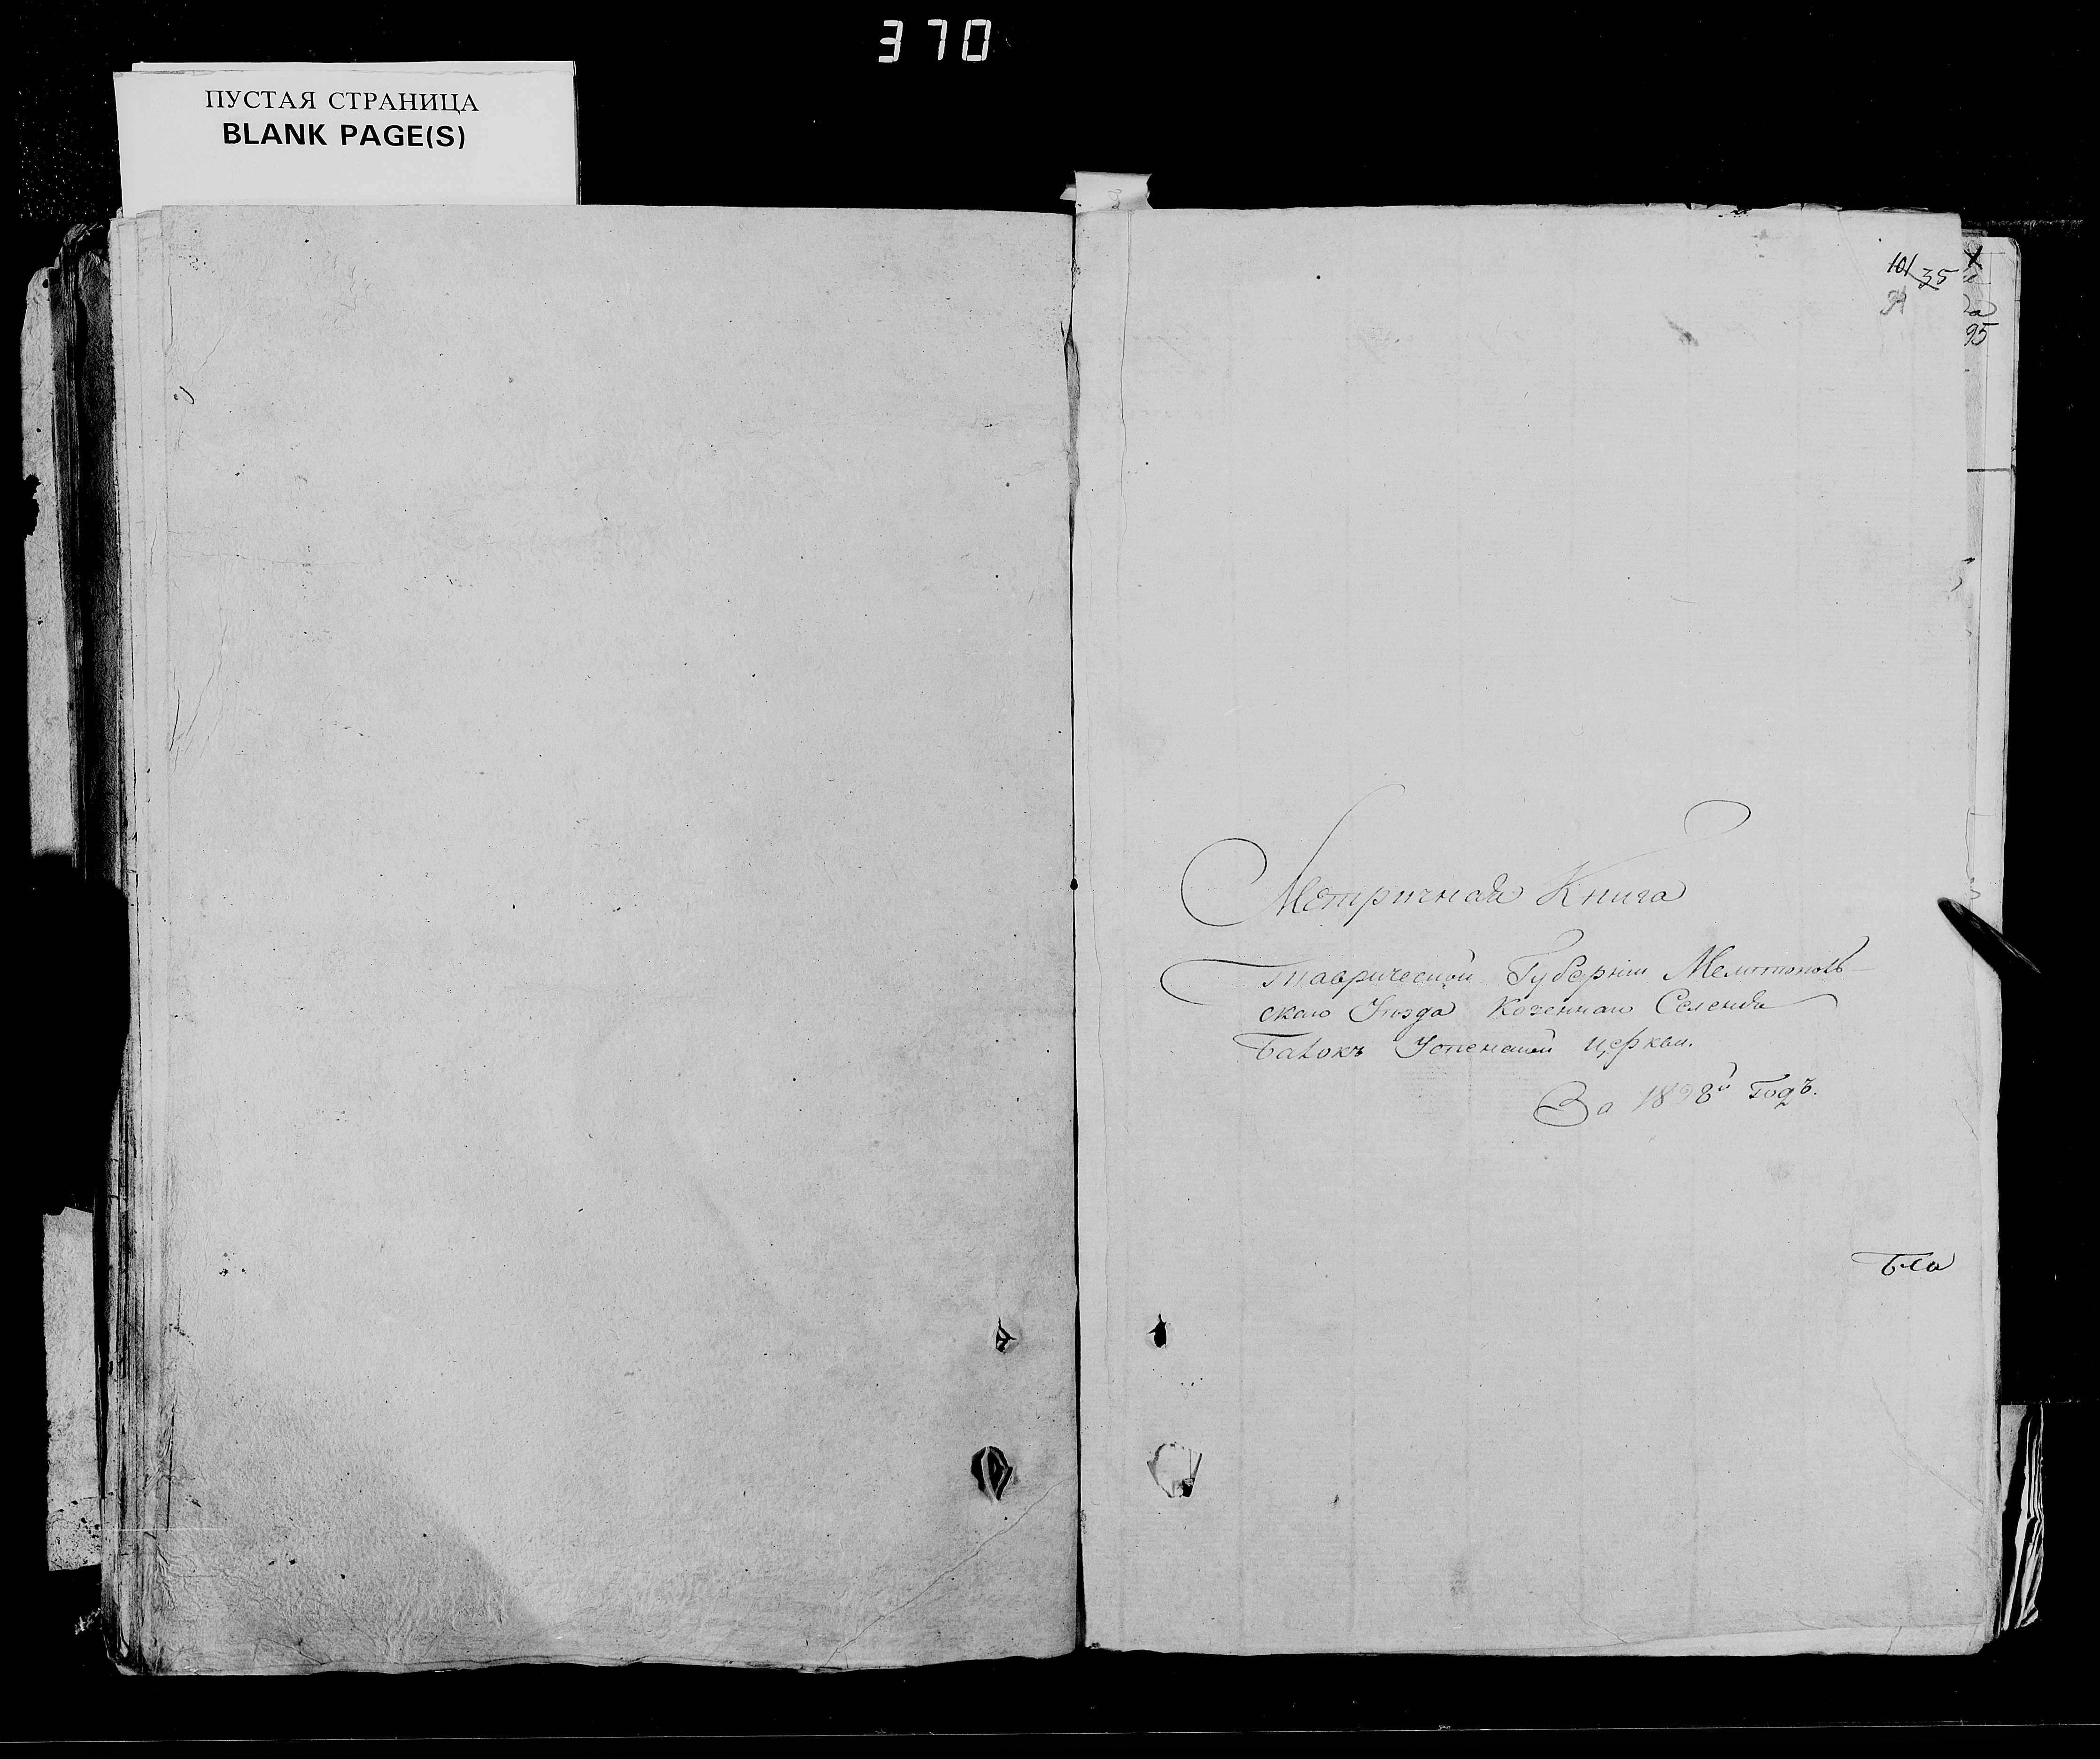 370
ПУСТАЯ СТРАНИЦА
BLANK PAGE(S)
101 35
95
Метричная Книга
Таврической Губерніи Мелитополь
скаго Уезда Казеннаго Селенія
Балокъ Успенской церкви.
За 1828й Годъ.